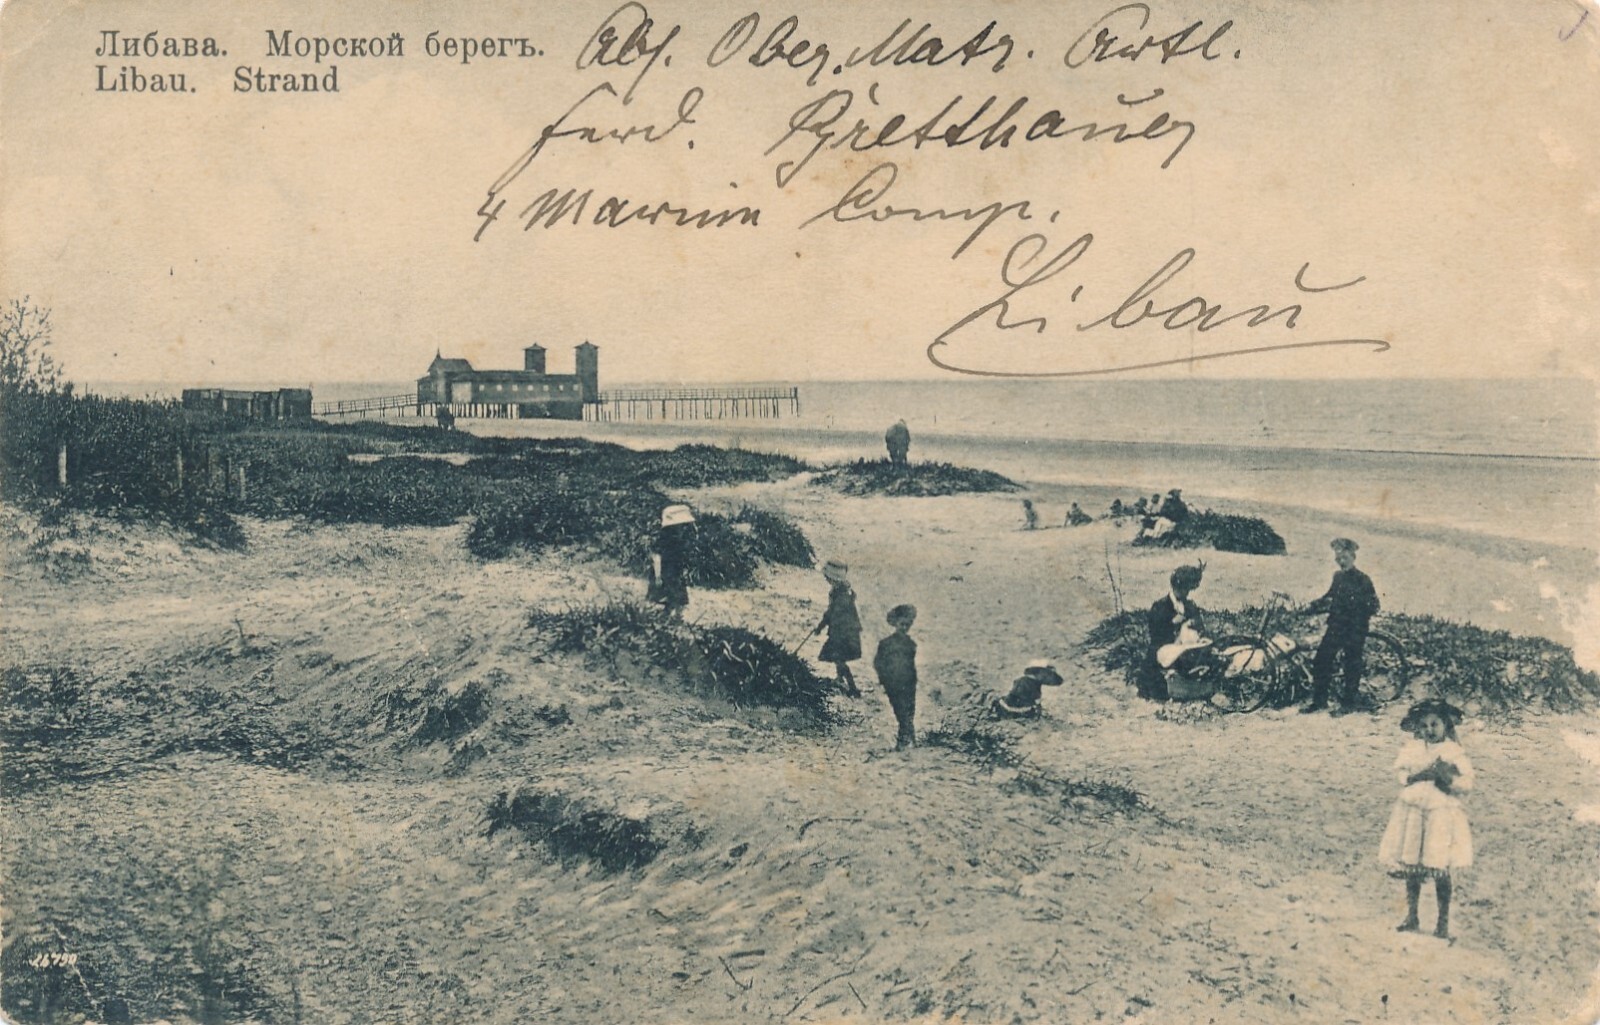 Либава. Морской берегъ.
Libau. Strand
Abs. Ober. Matr. Artl.
Ferd. Bretthauer
4 Marine Comp.
Libau